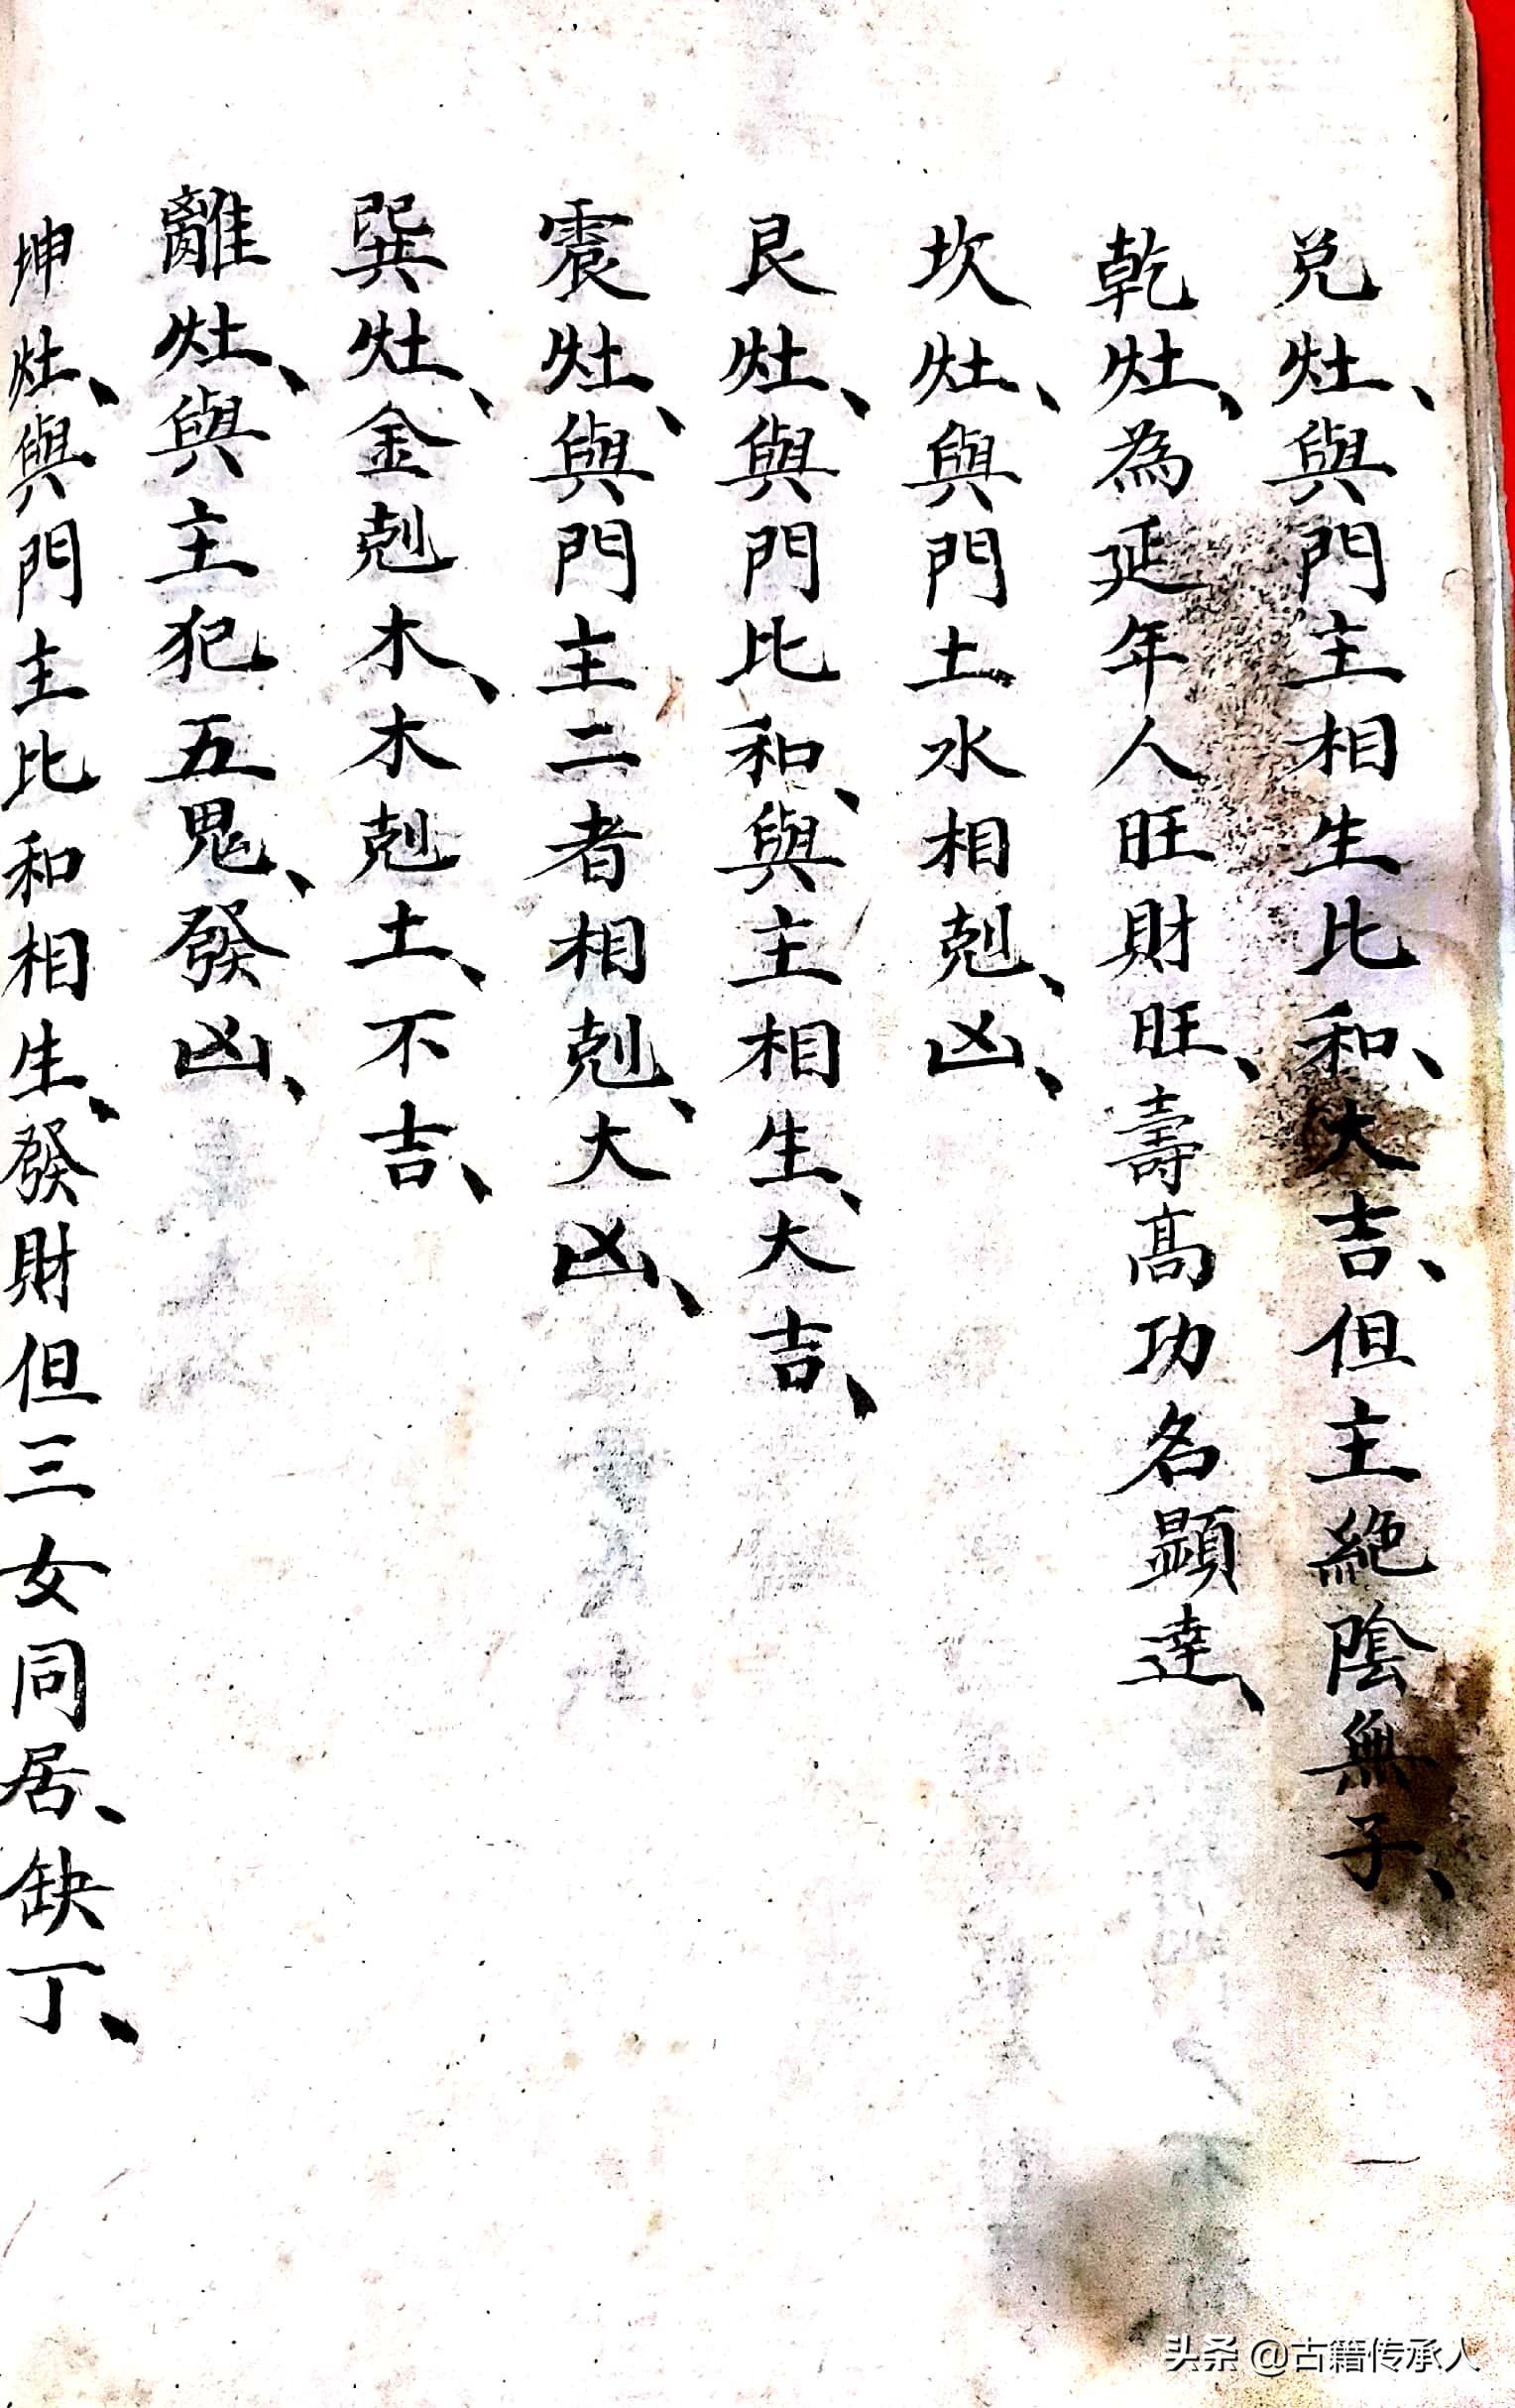 兑灶、與門主相生比和、大吉、但主絶陰無子、
乾灶、為延年人旺財旺、壽高功名顯達、
坎灶、與門土水相剋、凶、
艮灶、與門比和、與主相生、大吉、
震灶、與門主二者相剋、大凶、
巽灶、金剋木、木剋土、不吉、
離灶、與主犯五鬼、發凶、
坤灶、與門主比和相生、發財但三女同居、缺丁、
头条 @古籍传承人